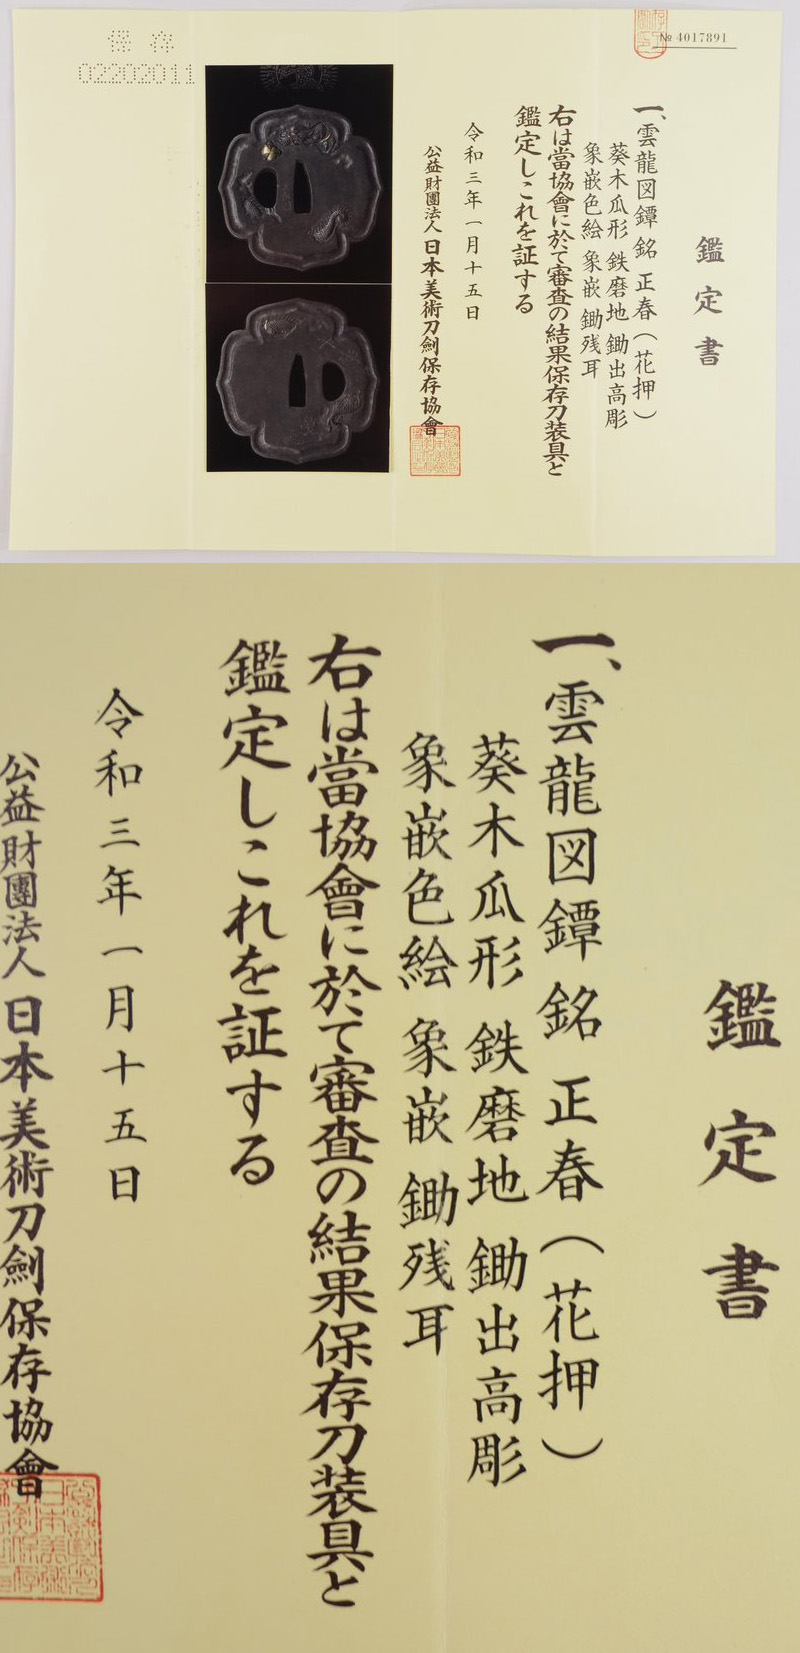 № 4017891
鑑定書
一、雲龍図鐔 銘 正春(花押)
葵木瓜形 鉄磨地 鋤出高彫
象嵌色絵 象嵌 鋤残耳
右は當協會に於て審査の結果保存刀装具と
鑑定しこれを証する
令和三年一月十五日
公益財團法人 日本美術刀劍保存協會
保存
02202011
鑑定書
一、雲龍図鐔 銘 正春(花押)
葵木瓜形 鉄磨地 鋤出高彫
象嵌色絵 象嵌 鋤残耳
右は當協會に於て審査の結果保存刀装具と
鑑定しこれを証する
令和三年一月十五日
公益財團法人 日本美術刀劍保存協會